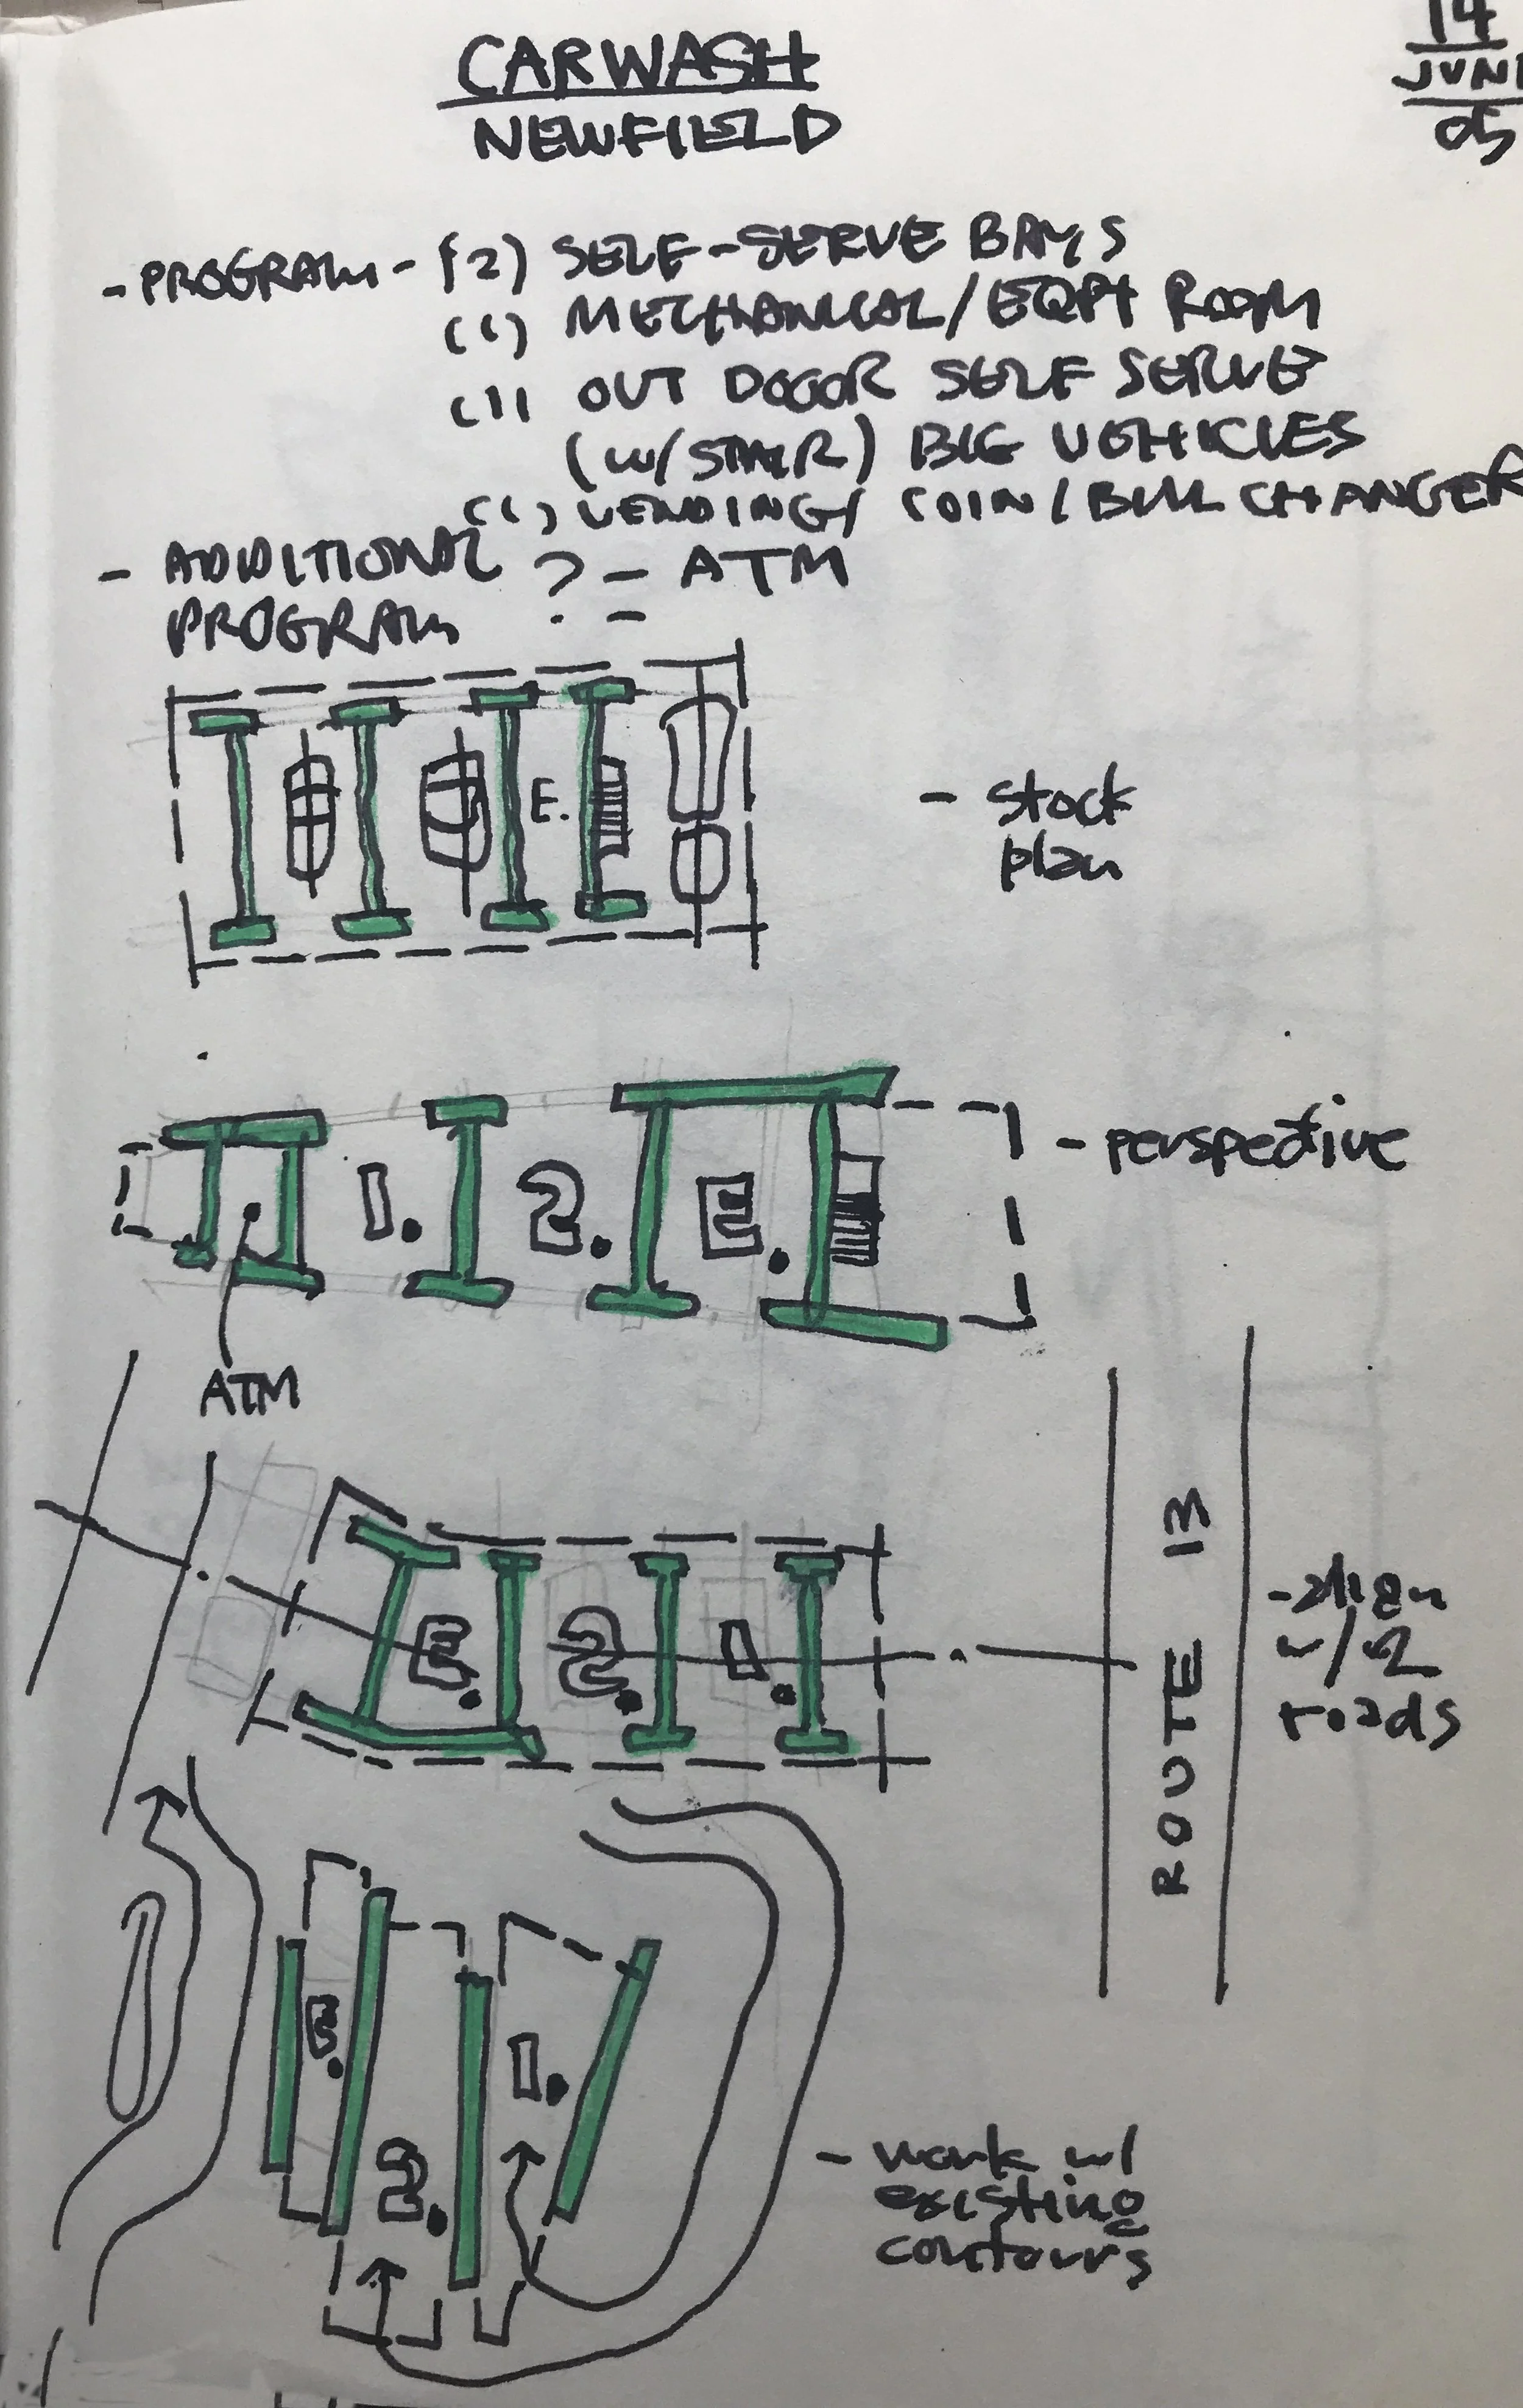 CARWASH
NEWFIELD
14
JUN
05
- PROGRAM - (2) SELF-SERVE BAYS
(1) MECHANICAL/EQPT ROOM
(1) OUT DOOOR SELF SERVE
(W/STAIR) BIG VEHICLES
(1) VENDING/ COIN/BILL CHANGER
- ADDITIONAL ? - ATM
PROGRAM -
E.
- stock
plan
1. 2. E.
- perspective
ATM
E. 2. 1.
ROUTE 13
- align
w/ 2
roads
E.
2.
1.
- work w/
existing
contours